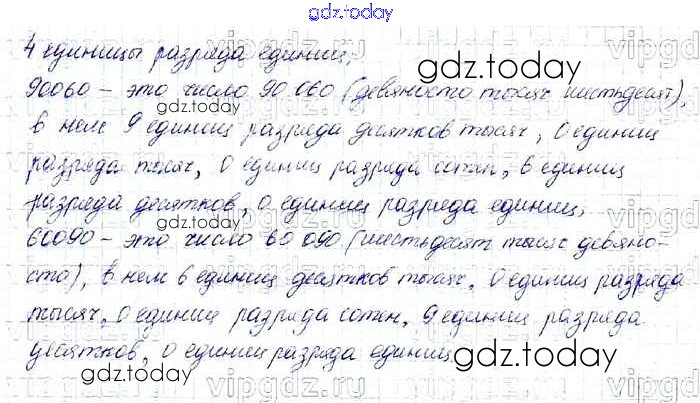 gdz.today
4 единицы разряда единиц,
90060 – это число 90 060 (девяносто тысяч шестьдесят),
в нем 9 единиц разряда десятков тысяч, 0 единиц
разряда тысяч, 0 единиц разряда сотен, 6 единиц
разряда десятков, 0 единиц разряда единиц,
60090 – это число 60 090 (шестьдесят тысяч девяно-
сто), в нем 6 единиц десятков тысяч, 0 единиц разряда
тысяч, 0 единиц разряда сотен, 9 единиц разряда
десятков, 0 единиц разряда единиц
gdz.today
gdz.today
gdz.today
gdz.today
gdz.today
gdz.today
vipgdz.ru